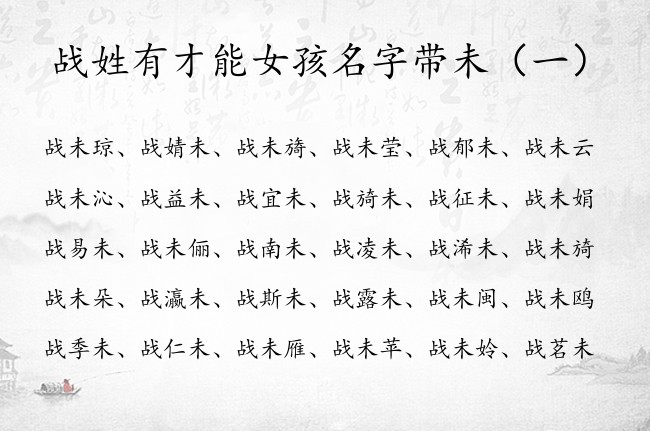 战姓有才能女孩名字带未（一）
战未琼、战婧未、战未旖、战未莹、战郁未、战未云
战未沁、战益未、战宜未、战旖未、战征未、战未娟
战易未、战未俪、战南未、战凌未、战浠未、战未旖
战未朵、战瀛未、战斯未、战露未、战未闽、战未鸥
战季未、战仁未、战未雁、战未苹、战未姈、战茗未